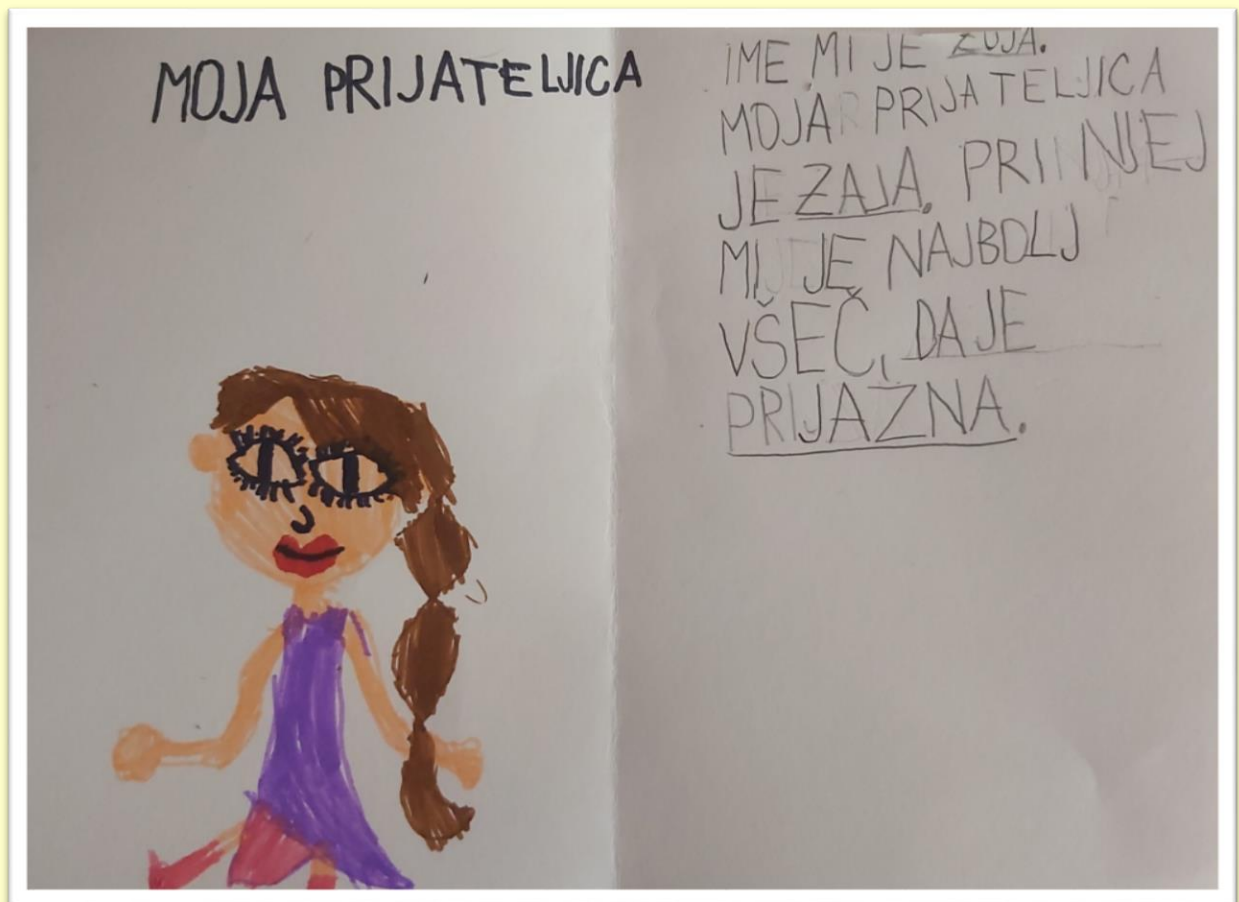 MOJA PRIJATELJICA
IME MI JE ZOJA.
MOJA PRIJATELJICA
JE ZAJA. PRI NJEJ
MI JE NAJBOLJ
VŠEČ, DA JE
PRIJAZNA.